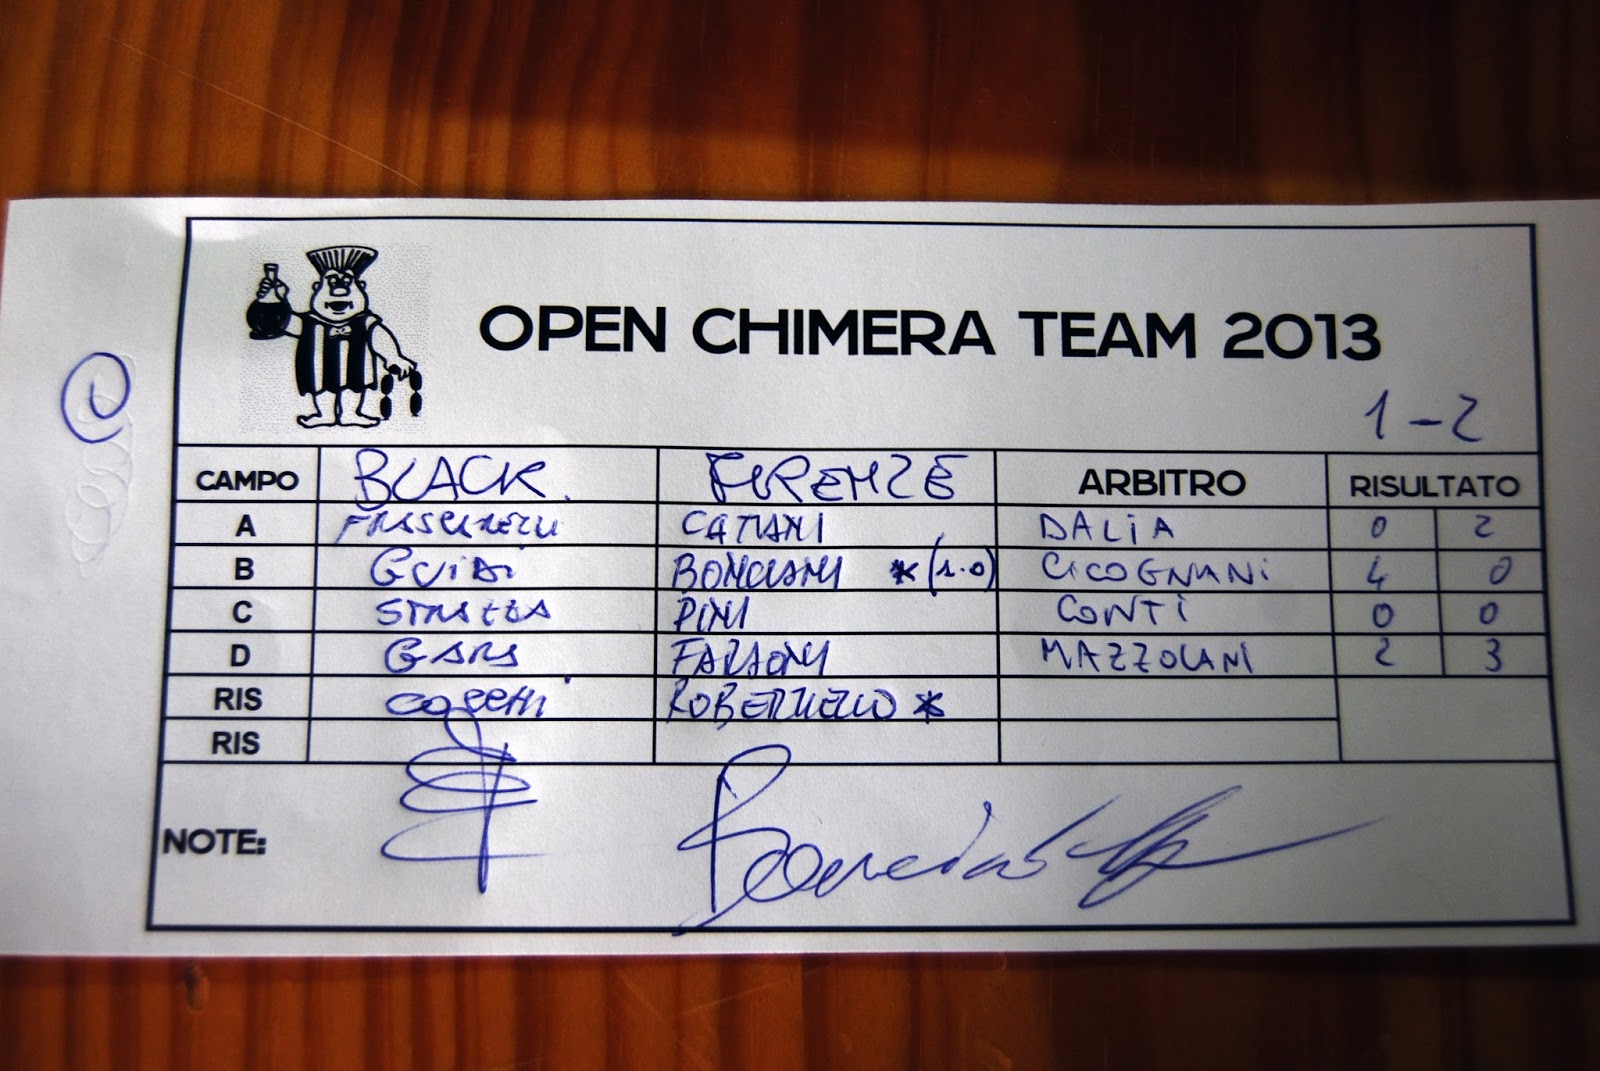 OPEN CHIMERA TEAM 2013
1-2
CAMPO BLACK FIRENZE ARBITRO RISULTATO
A CATIANI DALIA 0 2
B GUIDI BONCIANI *(1-0) CICOGNANI 4 0
C STRAZZA PINI CONTI 0 0
D GARA FALSONI MAZZOLANI 2 3
RIS *
RIS
NOTE: